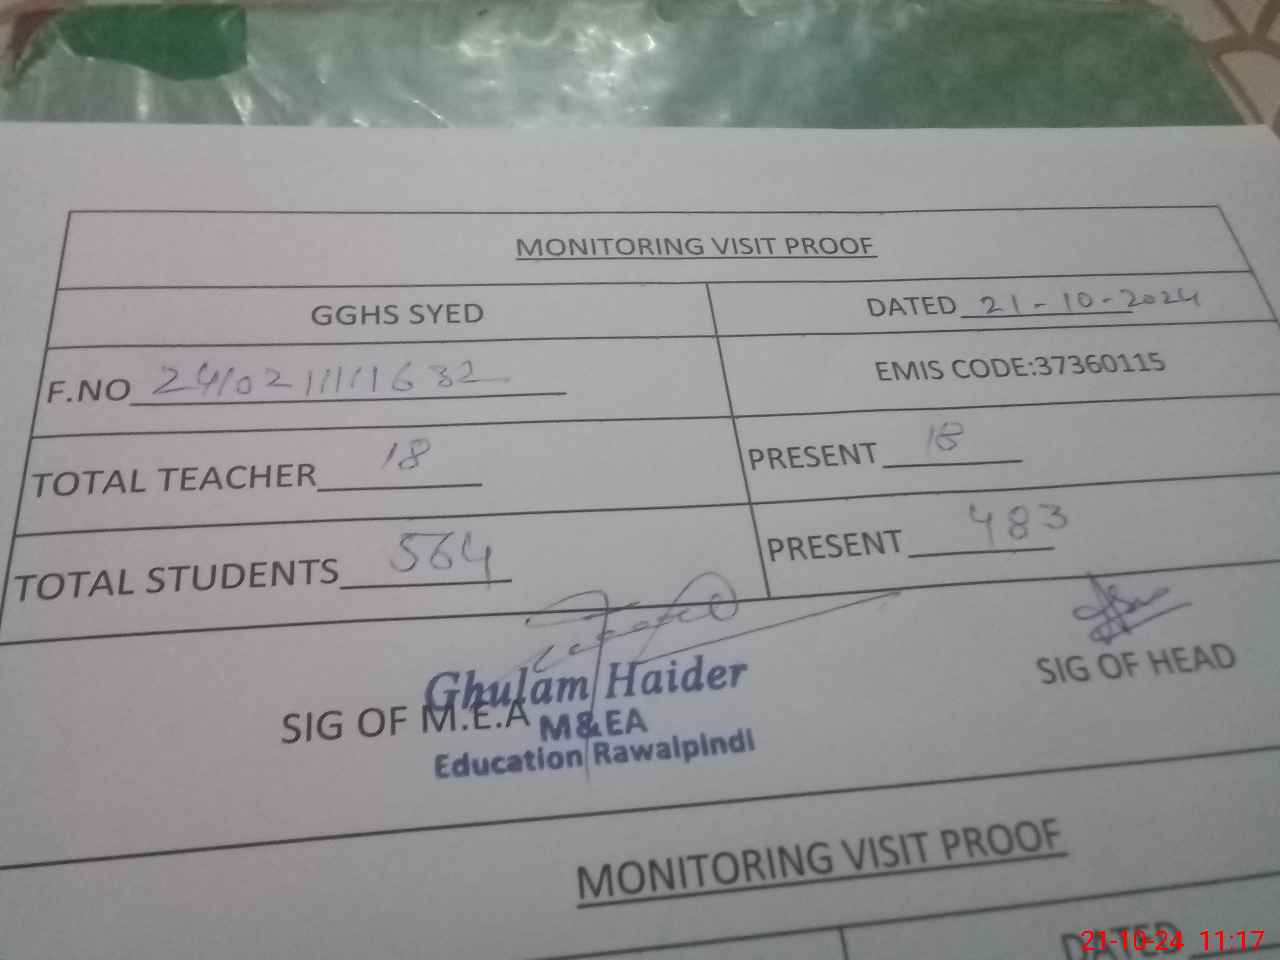 MONITORING VISIT PROOF
GGHS SYED
DATED 21-10-2024
F.NO 241021111632
EMIS CODE:37360115
TOTAL TEACHER 18
PRESENT 18
TOTAL STUDENTS 564
PRESENT 483
Ghulam Haider
SIG OF M.E.A
M&EA
Education Rawalpindi
SIG OF HEAD
MONITORING VISIT PROOF
DATED
21-10-24 11:17